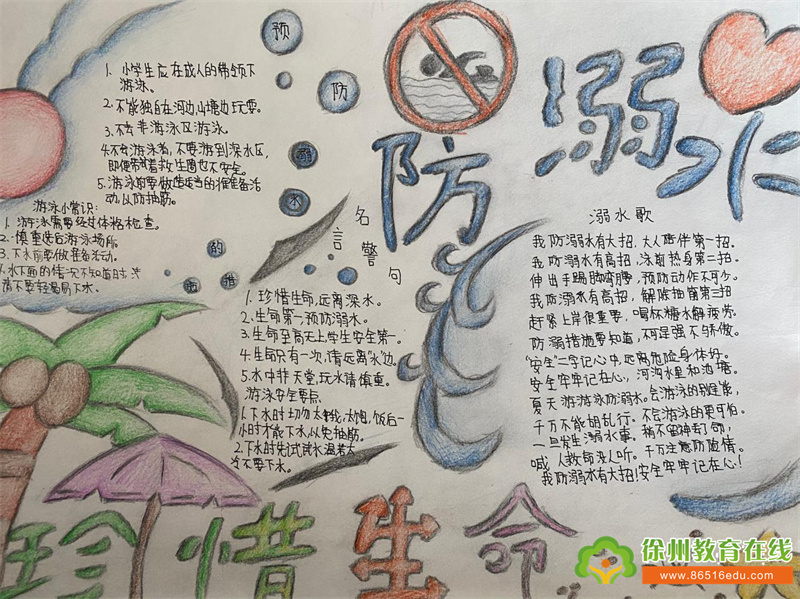 预
防
溺
水
的
措
施
防
溺
水
1. 小学生应在成人的带领下
游泳。
2.不能独自在河边山塘边玩耍。
3.不去非游泳区游泳
4.不会游泳者,不要游到深水区,
即便带着救生圈也不安全。
5.游泳前要做适当的准备活
动,以防抽筋。
游泳小常识:
1.游泳需要经过体格检查。
2.慎重选后游泳场所
3.下水前要做准备活动。
4.水下面的情况不知道时
请不要轻易下水。
名言警句
1. 珍惜生命,远离深水。
2.生命第一,预防溺水。
3.生命至高无上,学生安全第一。
4.生命只有一次,请远离"水"边。
5.水中非天堂,玩水请慎重。
游泳安全要点
1.下水时切勿太饿,太饱,饭后一
小时才能下水,以免抽筋。
2.下水时先试试水温若太
冷不要下水。
溺水歌
我防溺水有大招,大人陪伴第一招。
我防溺水有高招,泳前热身第二招。
伸出手踢脚弯腰,预防动作不可少。
我防溺水有高招,解除抽筋第三招
赶紧上岸很重要,喝杯糖水解疲劳。
防溺措施要知道,不可逞强不骄傲。
"安全"二字记心中,远离危险身体好。
安全牢牢记在心,河沟水里和池塘。
夏天游游泳防溺水,会游泳的别逞能,
千万不能胡乱行。不会游泳的更可怕。
一旦发生溺水事。稍不留神丢了命,
喊人救命没人听。千万注意防险情。
我防溺水有大招!安全牢牢记在心!
珍惜生命
徐州教育在线
www.86516edu.com